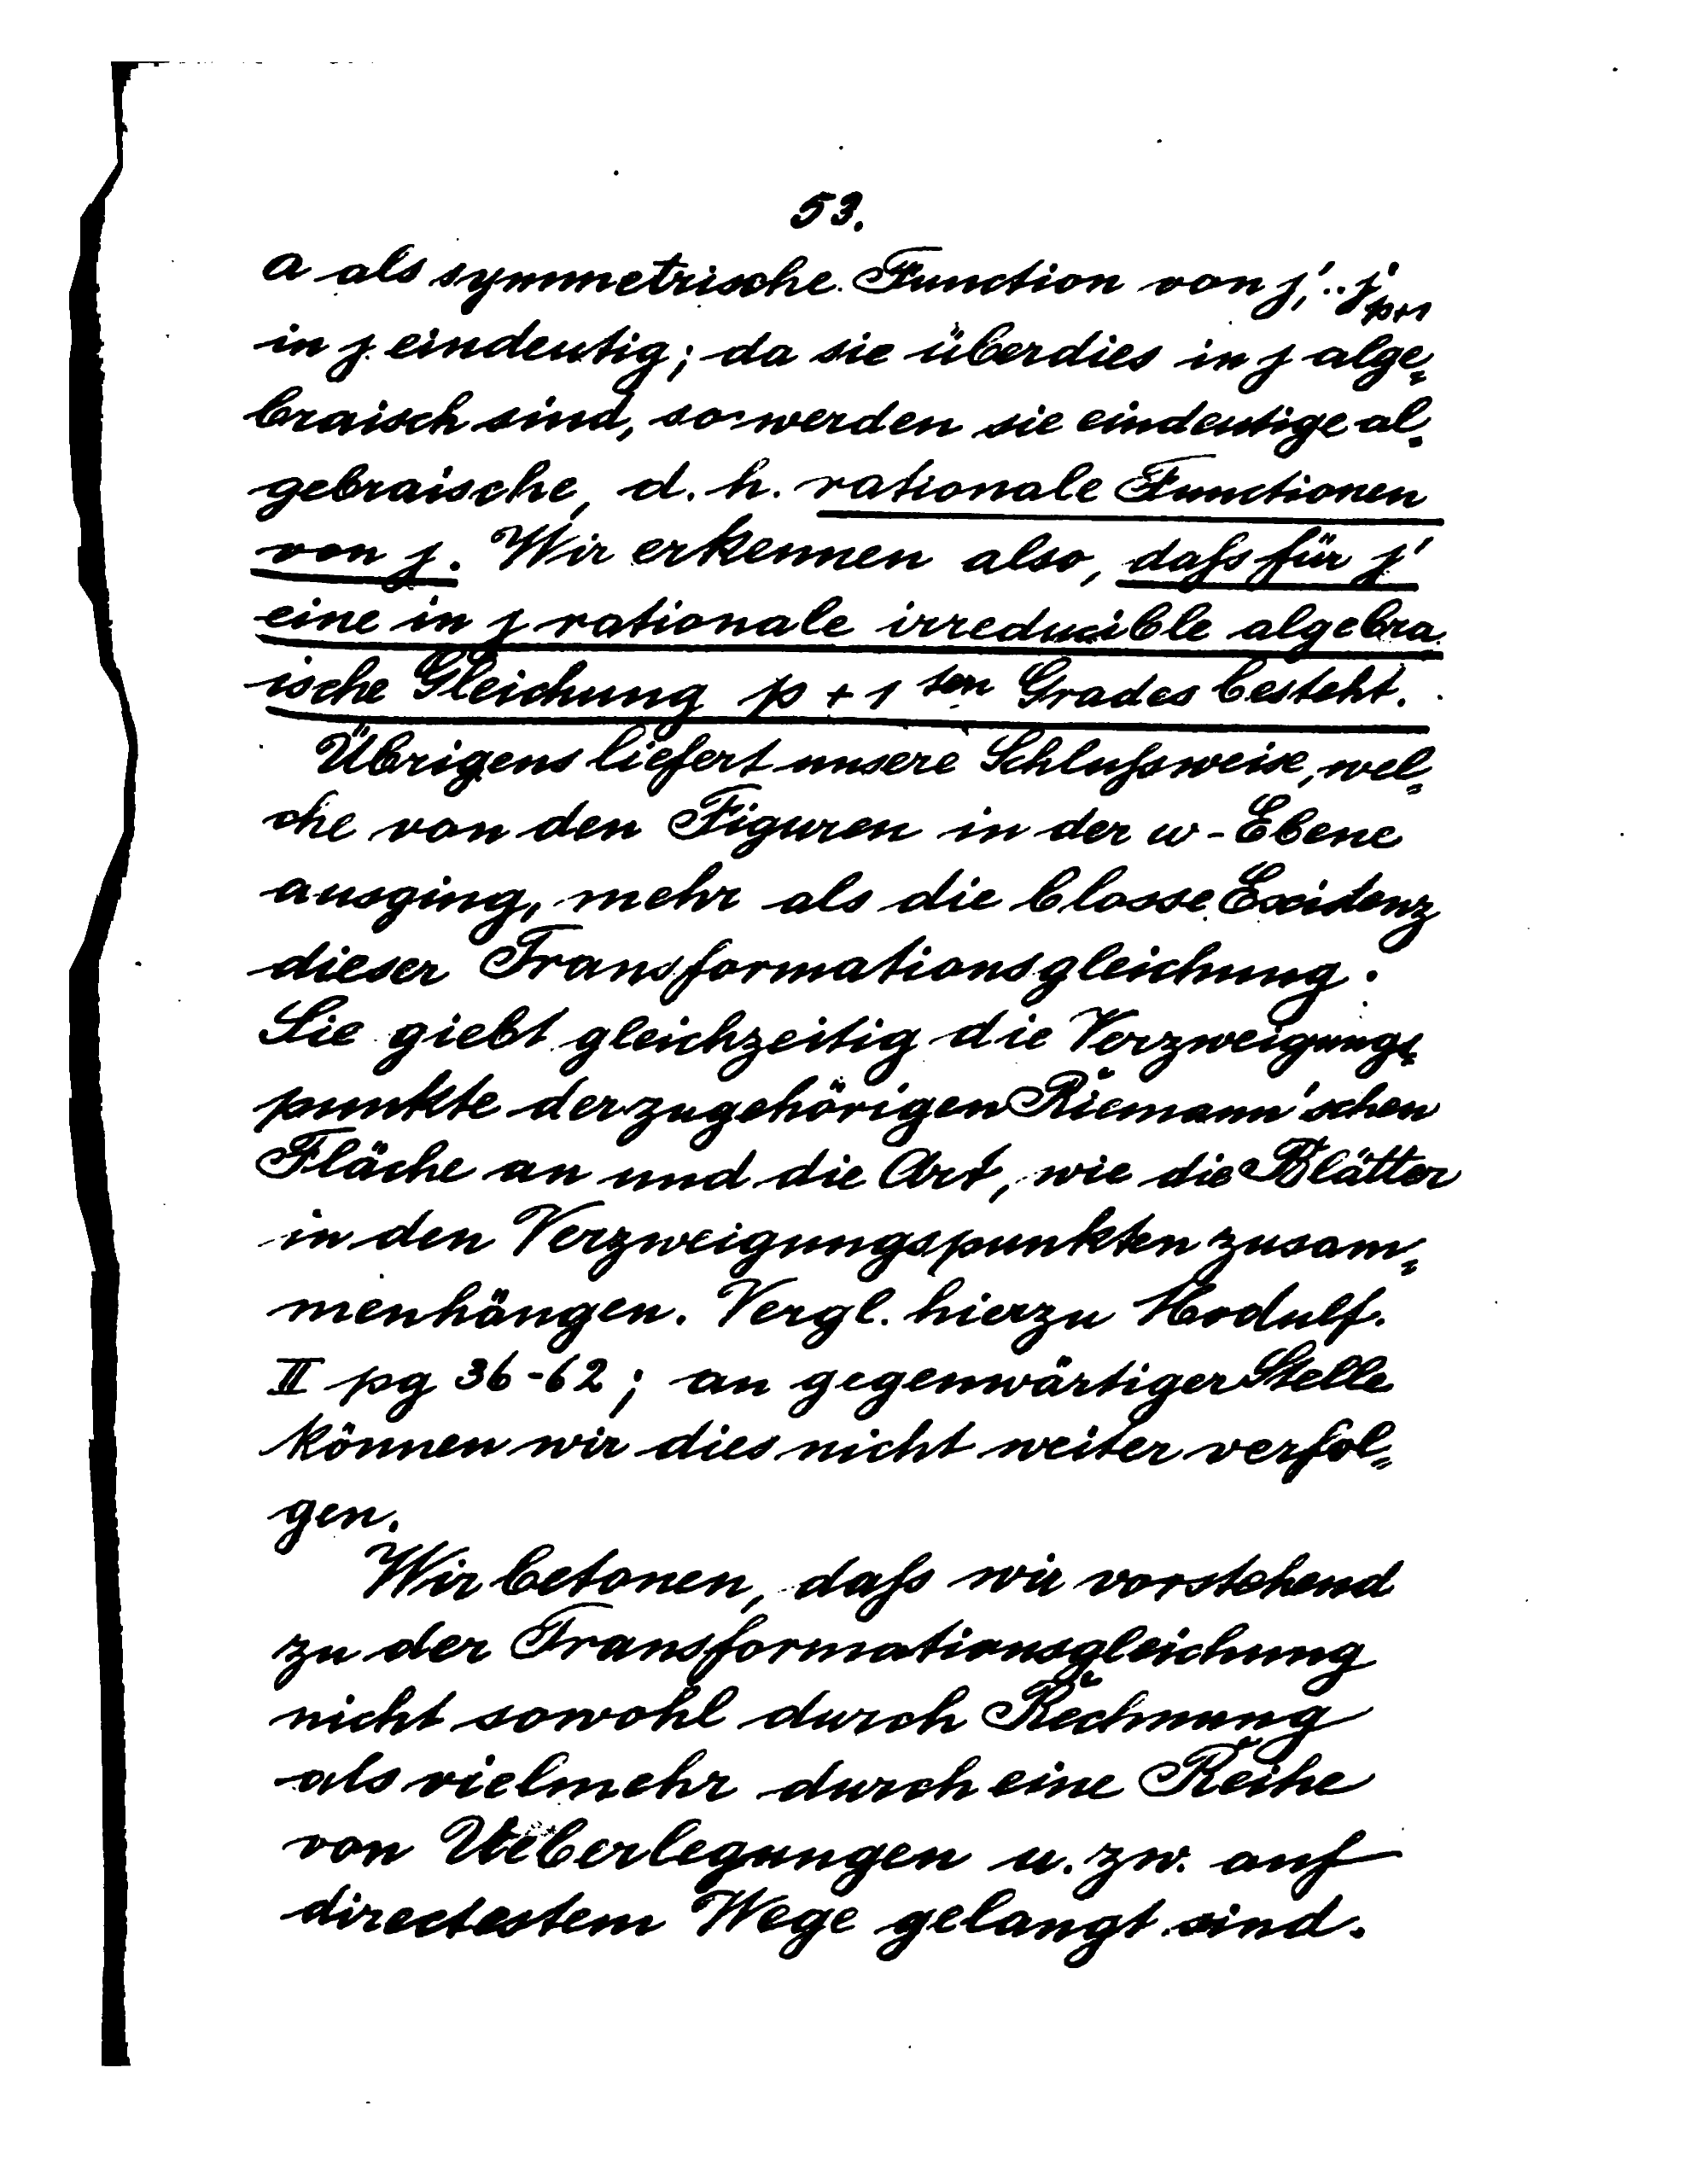 53.
a als symmetrische Function von j'₁..j'ₚ₊₁
in j eindeutig; da sie überdies in j alge=
braisch sind, so werden sie eindeutige al=
gebraische, d. h. rationale Functionen
von j. Wir erkennen also, daſs für j'
eine in j rationale irreducible algebra
ische Gleichung p + 1 ten Grades besteht.
Übrigens liefert unsere Schluſsweise, wel=
che von den Figuren in der ω-Ebene
ausging, mehr als die blosse Existenz
dieser Transformationsgleichung.
Sie giebt gleichzeitig die Verzweigungs=
punkte der zugehörigen Riemann'schen
Fläche an und die Art, wie die Blätter
in den Verzweigungspunkten zusam=
menhängen. Vergl. hierzu Modulf.
II pg 36-62; an gegenwärtiger Stelle
können wir dies nicht weiter verfol=
gen.
Wir betonen, daſs wir vorstehend
zu der Transformationsgleichung
nicht sowohl durch Rechnung
als vielmehr durch eine Reihe
von Ueberlegungen u. zw. auf
directestem Wege gelangt sind.